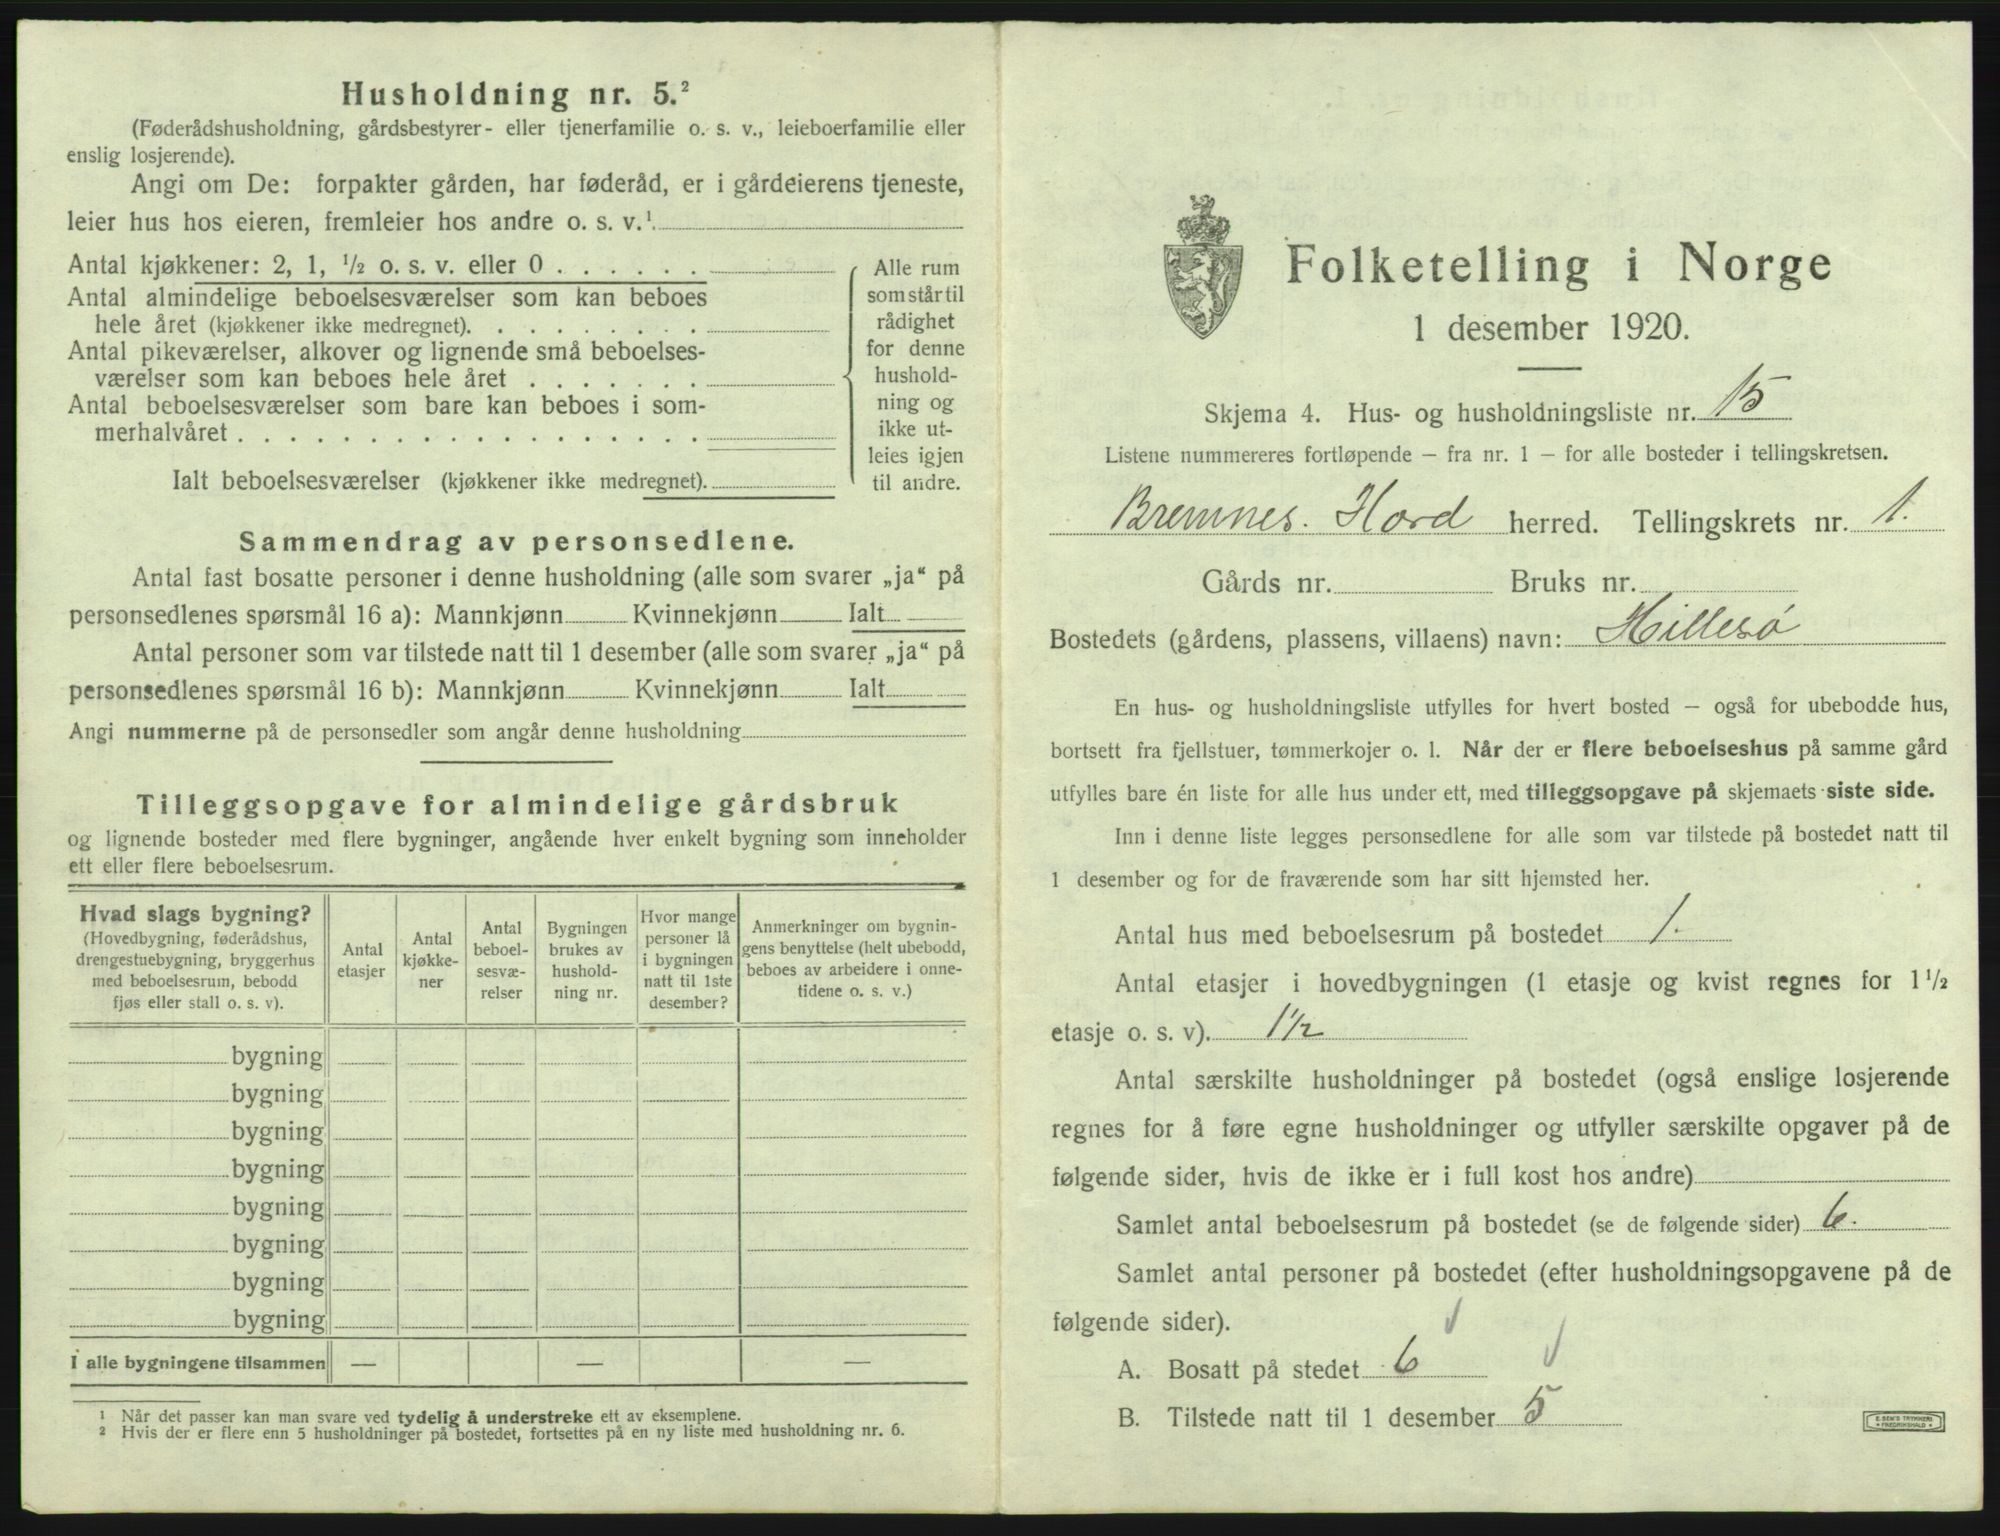 Husholdning nr. 5.²
(Føderådshusholdning, gårdsbestyrer- eller tjenerfamilie o. s. v., leieboerfamilie eller
enslig losjerende).
Angi om De: forpakter gården, har føderåd, er i gårdeierens tjeneste,
leier hus hos eieren, fremleier hos andre o. s. v.¹
Antal kjøkkener: 2, 1, ½ o. s. v. eller 0 . . . . . .
Antal almindelige beboelsesværelser som kan beboes
hele året (kjøkkener ikke medregnet). . . . . . . . .
Antal pikeværelser, alkover og lignende små beboelses-
værelser som kan beboes hele året . . . . . . .
Antal beboelsesværelser som bare kan beboes i som-
merhalvåret . . . . . . . . . . . . . . . . . .
Ialt beboelsesværelser (kjøkkener ikke medregnet).
Alle rum
som står til
rådighet
for denne
hushold-
ning og
ikke ut-
leies igjen
til andre.
Sammendrag av personsedlene.
Antal fast bosatte personer i denne husholdning (alle som svarer „ja“ på
personsedlenes spørsmål 16 a): Mannkjønn Kvinnekjønn Ialt
Antal personer som var tilstede natt til 1 desember (alle som svarer „ja“ på
personsedlenes spørsmål 16 b): Mannkjønn Kvinnekjønn Ialt
Angi nummerne på de personsedler som angår denne husholdning
Tilleggsopgave for almindelige gårdsbruk
og lignende bosteder med flere bygninger, angående hver enkelt bygning som inneholder
ett eller flere beboelsesrum.
Hvad slags bygning?
(Hovedbygning, føderådshus,
drengestuebygning, bryggerhus
med beboelsesrum, bebodd
fjøs eller stall o. s. v).
Antal
etasjer
Antal
kjøkke-
ner
Antal
beboel-
sesvæ-
relser
Bygningen
brukes av
hushold-
ning nr.
Hvor mange
personer lå
i bygningen
natt til 1ste
desember?
Anmerkninger om bygnin-
gens benyttelse (helt ubebodd,
beboes av arbeidere i onne-
tidene o. s. v.)
bygning
bygning
bygning
bygning
bygning
bygning
bygning
bygning
I alle bygningene tilsammen — — —
¹ Når det passer kan man svare ved tydelig å understreke ett av eksemplene.
² Hvis der er flere enn 5 husholdninger på bostedet, fortsettes på en ny liste med husholdning nr. 6.
Folketelling i Norge
1 desember 1920.
Skjema 4. Hus- og husholdningsliste nr. 15
Listene nummereres fortløpende – fra nr. 1 – for alle bosteder i tellingskretsen.
Bremnes. Hord herred. Tellingskrets nr. 1.
Gårds nr. Bruks nr.
Bostedets (gårdens, plassens, villaens) navn: Hillesø
En hus- og husholdningsliste utfylles for hvert bosted – også for ubebodde hus,
bortsett fra fjellstuer, tømmerkojer o. l. Når der er flere beboelseshus på samme gård
utfylles bare én liste for alle hus under ett, med tilleggsopgave på skjemaets siste side.
Inn i denne liste legges personsedlene for alle som var tilstede på bostedet natt til
1 desember og for de fraværende som har sitt hjemsted her.
Antal hus med beboelsesrum på bostedet 1.
Antal etasjer i hovedbygningen (1 etasje og kvist regnes for 1½
etasje o. s. v). 1½
Antal særskilte husholdninger på bostedet (også enslige losjerende
regnes for å føre egne husholdninger og utfyller særskilte opgaver på de
følgende sider, hvis de ikke er i full kost hos andre)
Samlet antal beboelsesrum på bostedet (se de følgende sider) 6.
Samlet antal personer på bostedet (efter husholdningsopgavene på de
følgende sider).
A. Bosatt på stedet 6
B. Tilstede natt til 1 desember 5
E. SEM'S TRYKKERI
FREDRIKSHALD